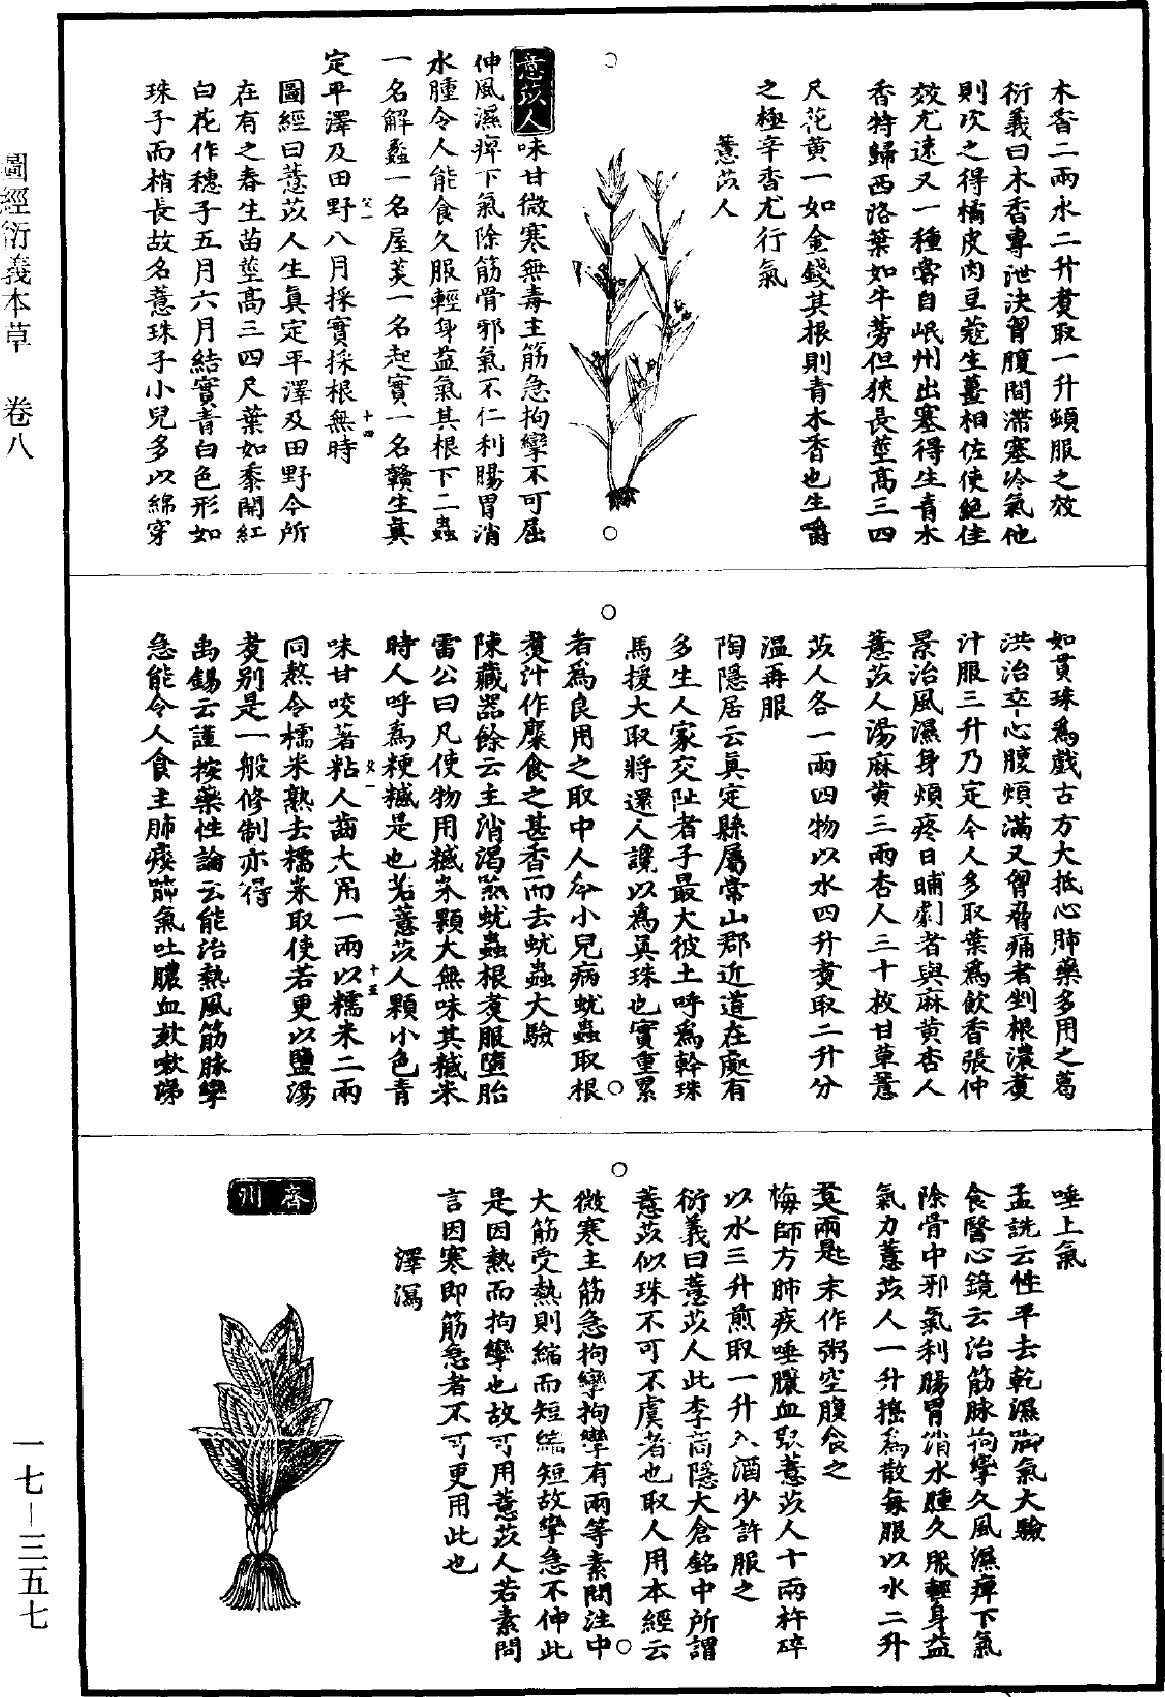 圖經衍義本草　卷八
一七—三五七
木香二兩水二升煑取一升頓服之效
衍義曰木香專泄決胷腹間滯塞冷氣他
則次之得橘皮肉豆蔻生薑相佐使絕佳
效尤速又一種嘗自岷州出塞得生青木
香特歸西洛葉如牛蒡但狹長莖高三四
尺花黄一如金錢其根則青木香也生嚼
之極辛香尤行氣
薏苡人
薏苡人味甘微寒無毒主筋急拘攣不可屈
伸風濕痺下氣除筋骨邪氣不仁利腸胃消
水腫令人能食久服輕身益氣其根下三蟲
一名解蠡一名屋菼一名起實一名贛生真
定平澤及田野八月採實採根無時
十四
圖經曰薏苡人生真定平澤及田野今所
在有之春生苗莖高三四尺葉如黍開紅
白花作穗子五月六月結實青白色形如
珠子而稍長故名薏珠子小兒多以綿穿
如貫珠爲戲古方大抵心肺藥多用之葛
洪治卒心腹煩滿又胷脅痛者剉根濃煑
汁服三升乃定今人多取葉爲飲香張仲
景治風濕身煩疼日晡劇者與麻黄杏人
薏苡人湯麻黄三兩杏人三十枚甘草薏
苡人各一兩四物以水四升煑取二升分
溫再服
陶隱居云真定縣屬常山郡近道在處有
多生人家交阯者子最大彼土呼爲𦼮珠
馬援大取將還人讒以爲真珠也實重累
者爲良用之取中人今小兒病蚘蟲取根
煑汁作糜食之甚香而去蚘蟲大驗
陳藏器餘云主消渴煞蚘蟲根煑服墮胎
雷公曰凡使勿用𥻧米顆大無味其𥻧米
時人呼爲粳𥻧是也若薏苡人顆小色青
味甘咬著粘人齒大用一兩以糯米二兩
十五
同熬令糯米熟去糯米取使若更以鹽湯
煑别是一般修制亦得
禹錫云謹按藥性論云能治熱風筋脉攣
急能令人食主肺痿肺氣吐膿血欬嗽涕
唾上氣
孟詵云性平去乾濕脚氣大驗
食醫心鏡云治筋脉拘攣久風濕痺下氣
除骨中邪氣利腸胃消水腫久服輕身益
氣力薏苡人一升擣爲散每服以水二升
煑兩匙末作粥空腹食之
梅師方肺疾唾膿血取薏苡人十兩杵碎
以水三升煎取一升入酒少許服之
衍義曰薏苡人此李商隱大倉銘中所謂
薏苡似珠不可不虞者也取人用本經云
微寒主筋急拘攣拘攣有兩等素問注中
大筋受熱則縮而短縮短故攣急不伸此
是因熱而拘攣也故可用薏苡人若素問
言因寒即筋急者不可更用此也
澤瀉
齊州